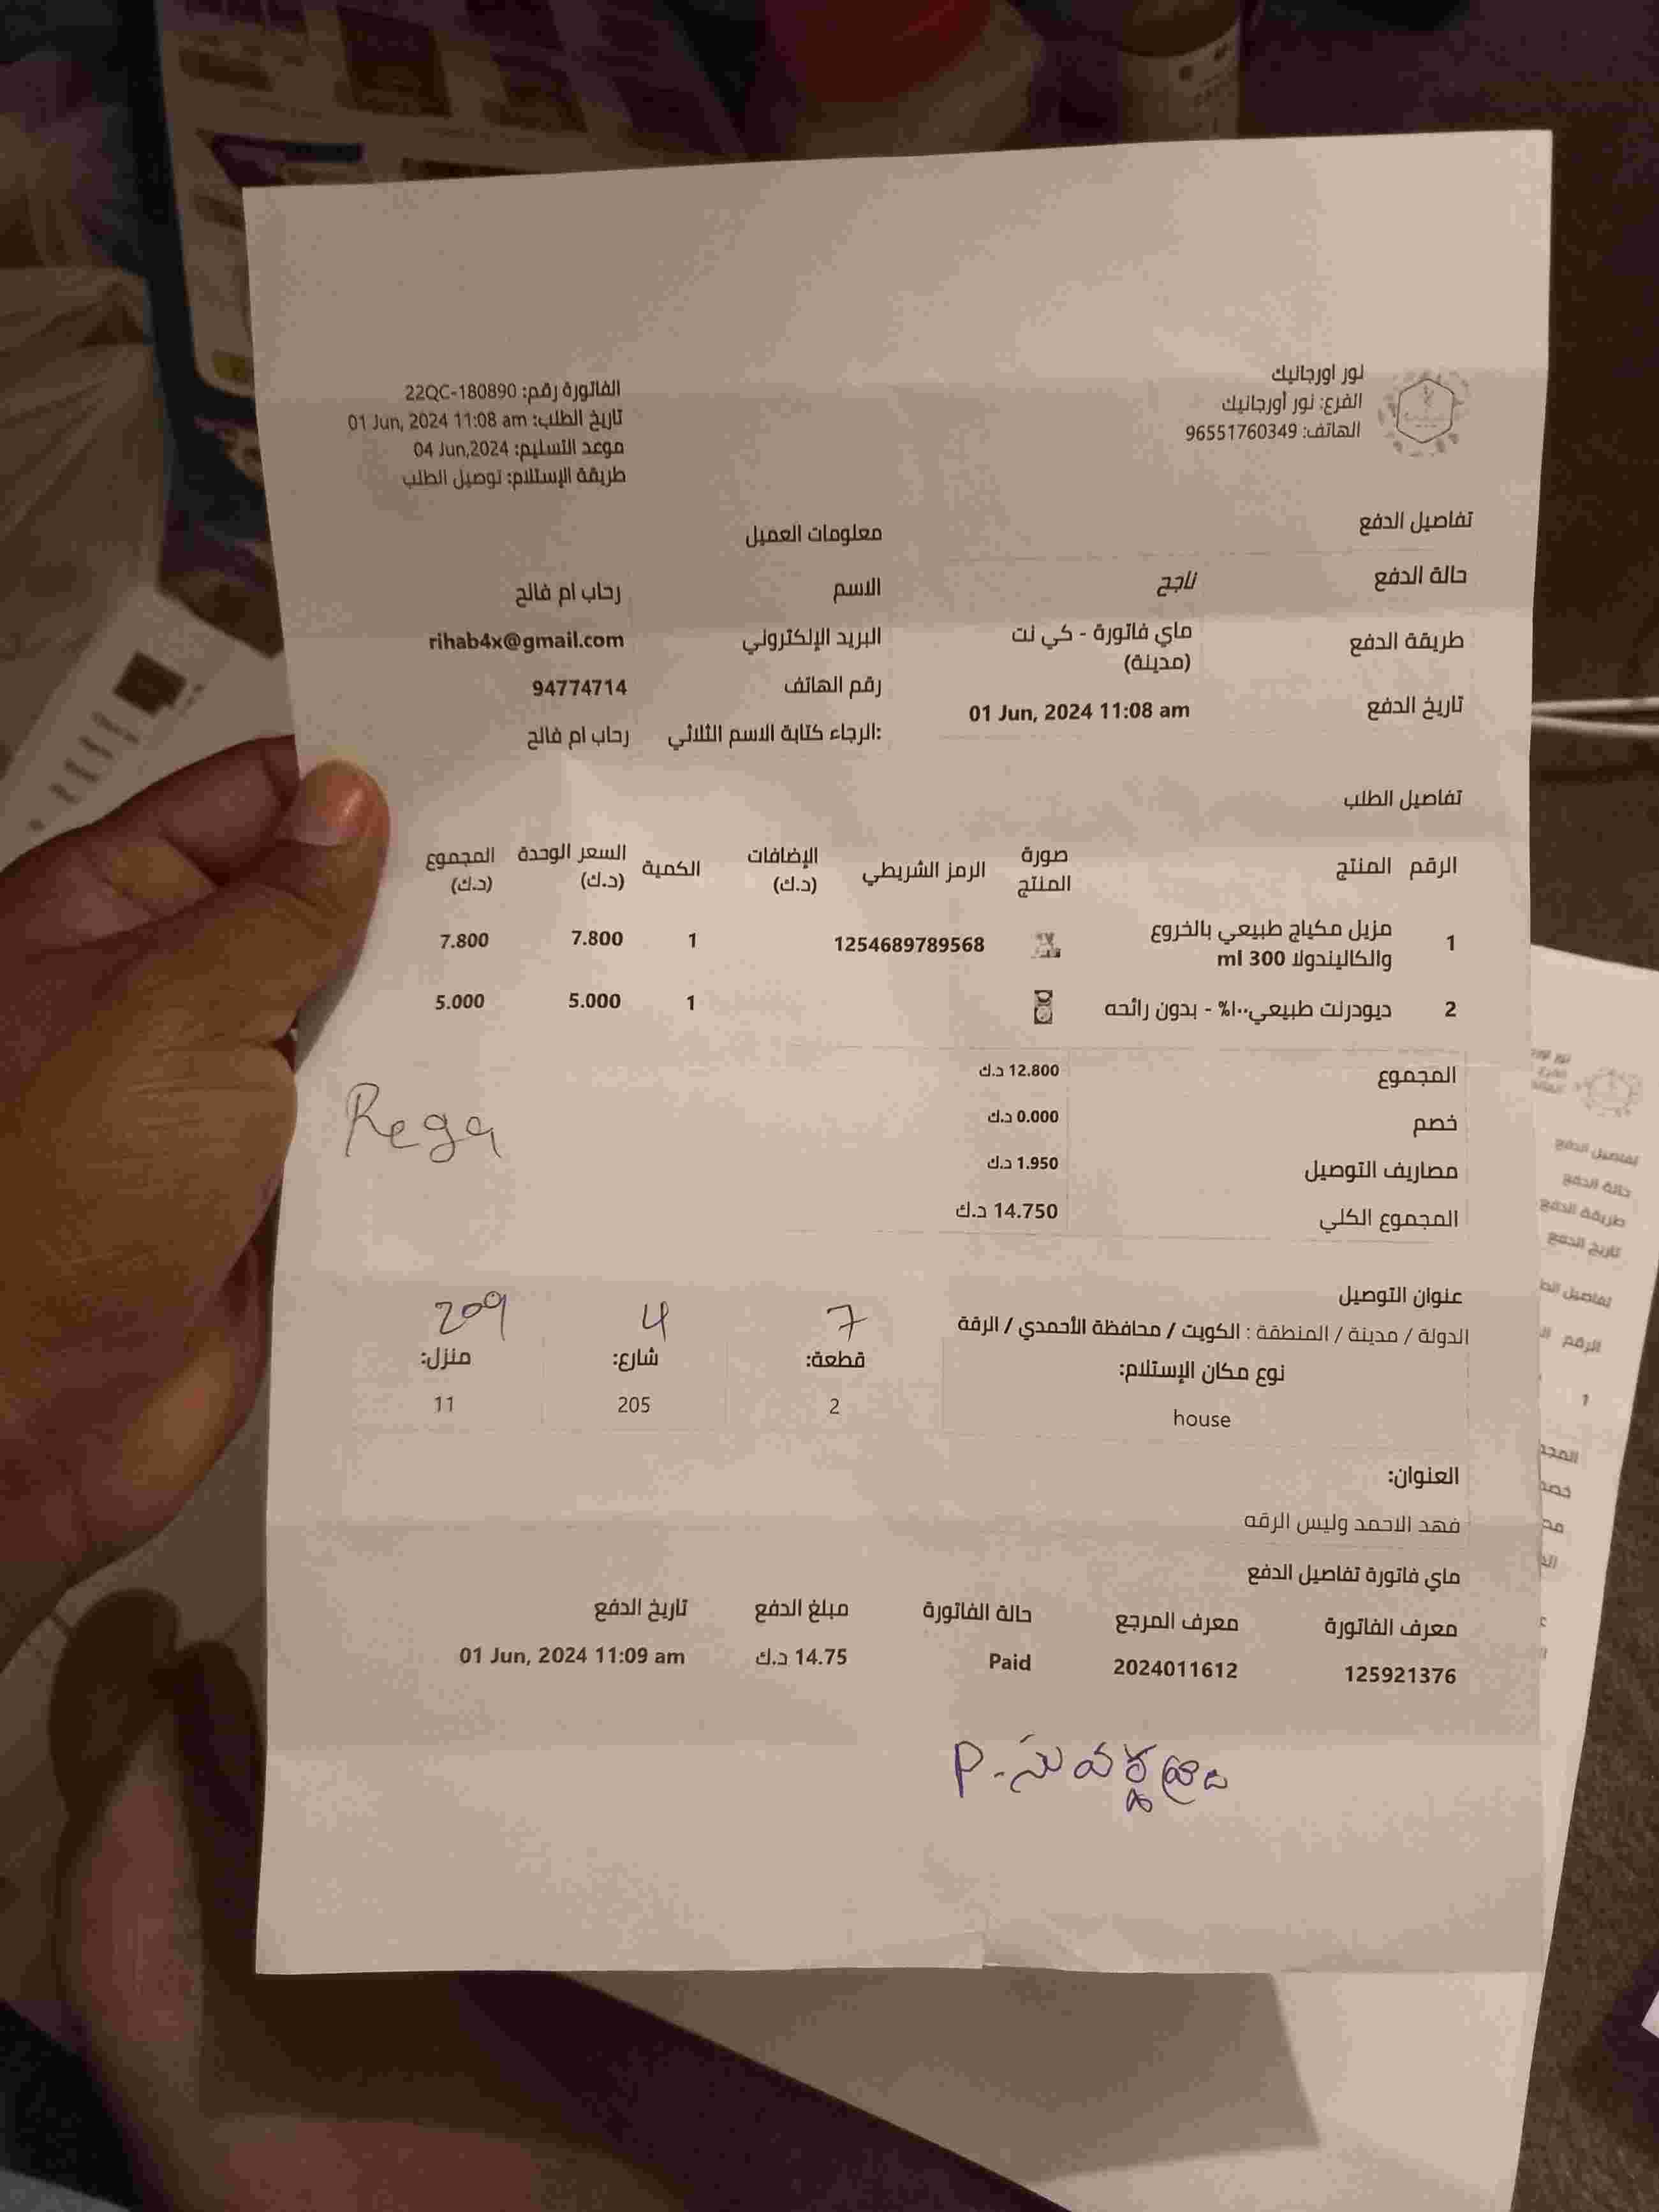 نور اورجانيك
الفرع: نور أورجانيك
الهاتف: 96551760349
الفاتورة رقم: 22QC-180890
تاريخ الطلب: 01 Jun, 2024 11:08 am
موعد التسليم: 04 Jun,2024
طريقة الإستلام: توصيل الطلب
تفاصيل الدفع
حالة الدفع ناجح
طريقة الدفع ماي فاتورة - كي نت
(مدينة)
تاريخ الدفع 01 Jun, 2024 11:08 am
معلومات العميل
الاسم رحاب ام فالح
البريد الإلكتروني rihab4x@gmail.com
رقم الهاتف 94774714
:الرجاء كتابة الاسم الثلاثي رحاب ام فالح
تفاصيل الطلب
الرقم المنتج صورة المنتج الرمز الشريطي الإضافات (د.ك) الكمية السعر الوحدة (د.ك) المجموع (د.ك)
1 مزيل مكياج طبيعي بالخروع 1254689789568 1 7.800 7.800
والكاليندولا 300 ml
2 ديودرنت طبيعي١٠٠% - بدون رائحه 1 5.000 5.000
المجموع 12.800 د.ك
خصم 0.000 د.ك
Rega
مصاريف التوصيل 1.950 د.ك
المجموع الكلي 14.750 د.ك
عنوان التوصيل
الدولة / مدينة / المنطقة : الكويت / محافظة الأحمدي / الرقة
7 4 209
نوع مكان الإستلام: قطعة: شارع: منزل:
house 2 205 11
العنوان:
فهد الاحمد وليس الرقه
ماي فاتورة تفاصيل الدفع
معرف الفاتورة معرف المرجع حالة الفاتورة مبلغ الدفع تاريخ الدفع
125921376 2024011612 Paid 14.75 د.ك 01 Jun, 2024 11:09 am
P.
تفاصيل الدفع
حالة الدفع
طريقة الدفع
تاريخ الدفع
الرقم
1